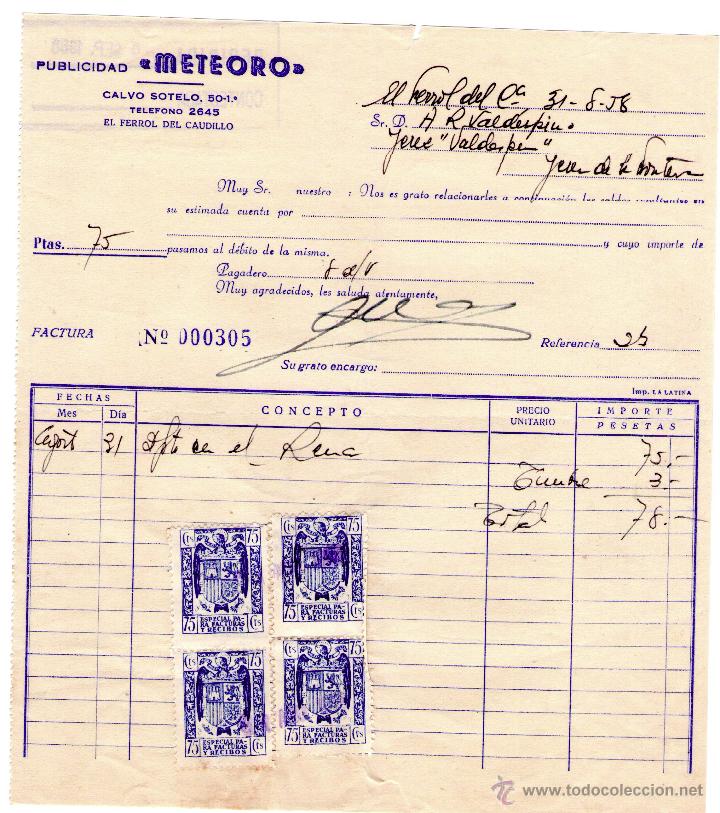 PUBLICIDAD «METEORO»
CALVO SOTELO, 50-1.º
TELEFONO 2645
EL FERROL DEL CAUDILLO
El Ferrol del Cª 31-8-58
Sr. D. A R Valdespino
Jerez "Valdespino"
Jerez de la Frontera
Muy Sr. nuestro : Nos es grato relacionarles a continuación los saldos resultantes en
su estimada cuenta por
y cuyo importe de
Ptas. 75 pasamos al débito de la misma.
Pagadero 8 d/v
Muy agradecidos, les saluda atentamente,
FACTURA Nº 000305
Referencia 25
Su grato encargo:
Imp. LA LATINA
FECHAS CONCEPTO PRECIO UNITARIO IMPORTE
Mes Día PESETAS
Agost 31 en el Rena 75.-
Timbre 3.-
Total 78.-
Cts 75
ESPECIAL PA-
RA FACTURAS
Y RECIBOS
75 Cts
Cts 75
ESPECIAL PA-
RA FACTURAS
Y RECIBOS
75 Cts
Cts 75
ESPECIAL PA-
RA FACTURAS
Y RECIBOS
75 Cts
Cts 75
ESPECIAL PA-
RA FACTURAS
Y RECIBOS
75 Cts
www.todocoleccion.net